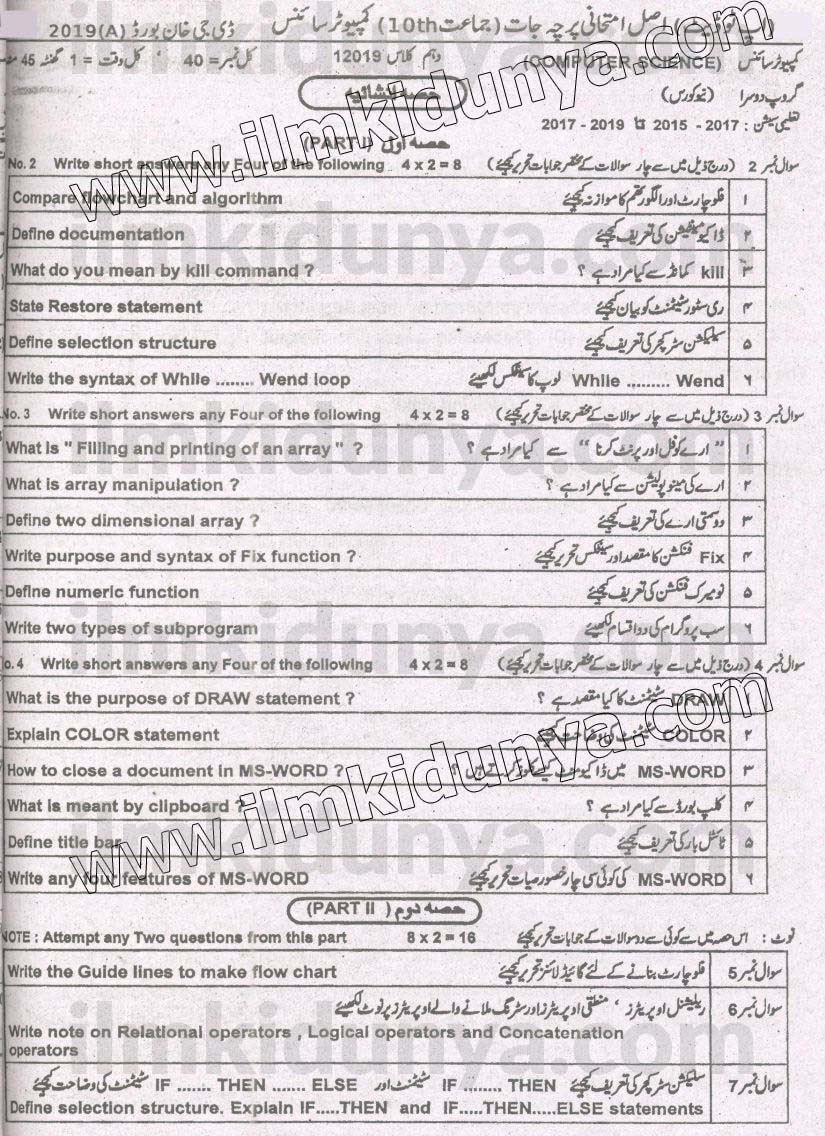 (اپ ٹو ڈیٹ) اصل امتحانی پرچہ جات (جماعت 10th) کمپیوٹر سائنس ڈی جی خان بورڈ 2019(A)
کمپیوٹر سائنس (COMPUTER SCIENCE) دہم کلاس 12019 کل نمبر = 40 ، کل وقت = 1 گھنٹہ 45
گروپ دوسرا (نیو کورس) حصہ انشائیہ
تعلیمی سیشن : 2017 - 2015 تا 2019 - 2017
حصہ اول (PART I)
No. 2 Write short answers any Four of the following 4 x 2 = 8 (درج ذیل میں سے چار سوالات کے مختصر جوابات تحریر کیجئے) سوال نمبر 2
Compare flowchart and algorithm فلوچارٹ اور الگورتھم کا موازنہ کیجئے ۱
Define documentation ڈاکیومینٹیشن کی تعریف کیجئے ۲
What do you mean by kill command ? kill کمانڈ سے کیا مراد ہے ؟ ۳
State Restore statement ری سٹور سٹیٹمنٹ کو بیان کیجئے ۴
Define selection structure سلیکشن سٹرکچر کی تعریف کیجئے ۵
Write the syntax of While ........ Wend loop While ......... Wend لوپ کا سینٹکس لکھیئے ۶
No. 3 Write short answers any Four of the following 4 x 2 = 8 (درج ذیل میں سے چار سوالات کے مختصر جوابات تحریر کیجئے) سوال نمبر 3
What is " Filling and printing of an array " ? ” ارے کو فل اور پرنٹ کرنا “ سے کیا مراد ہے ؟ ۱
What is array manipulation ? ارے کی مینوپولیشن سے کیا مراد ہے ؟ ۲
Define two dimensional array ? دو سمتی ارے کی تعریف کیجئے ۳
Write purpose and syntax of Fix function ? Fix فنکشن کا مقصد اور سینٹکس تحریر کیجئے ۴
Define numeric function نومیرک فنکشن کی تعریف کیجئے ۵
Write two types of subprogram سب پروگرام کی دو اقسام لکھیئے ۶
o. 4 Write short answers any Four of the following 4 x 2 = 8 (درج ذیل میں سے چار سوالات کے مختصر جوابات تحریر کیجئے) سوال نمبر 4
What is the purpose of DRAW statement ? DRAW سٹیٹمنٹ کا کیا مقصد ہے ؟
Explain COLOR statement COLOR سٹیٹمنٹ کی وضاحت کیجئے ۲
How to close a document in MS-WORD ? MS-WORD میں ڈاکیومنٹ کیسے کلوز کرتے ہیں ؟ ۳
What is meant by clipboard ? کلپ بورڈ سے کیا مراد ہے ؟ ۴
Define title bar ٹائٹل بار کی تعریف کیجئے ۵
Write any four features of MS-WORD MS-WORD کی کوئی سی چار خصوصیات تحریر کیجئے ۶
حصہ دوم (PART II)
NOTE : Attempt any Two questions from this part 8 x 2 = 16 نوٹ : اس حصہ میں سے کوئی سے دو سوالات کے جوابات تحریر کیجئے
Write the Guide lines to make flow chart فلوچارٹ بنانے کے لئے گائیڈ لائنز تحریر کیجئے سوال نمبر 5
ریلیشنل اوپریٹرز ، منطقی اوپریٹرز اور سٹرنگ ملانے والے اوپریٹرز پر نوٹ لکھیئے سوال نمبر 6
Write note on Relational operators , Logical operators and Concatenation
operators
سلیکشن سٹرکچر کی تعریف کیجئے IF ........ THEN سٹیٹمنٹ اور IF ....... THEN ....... ELSE سٹیٹمنٹ کی وضاحت کیجئے سوال نمبر 7
Define selection structure. Explain IF.....THEN and IF.....THEN.....ELSE statements
www.ilmkidunya.com
www.ilmkidunya.com
ilmkidunya.com
ilmkidunya.com
ilmkidunya.com
ilmkidunya.com
ilmkidunya.com
ilmkidunya.com